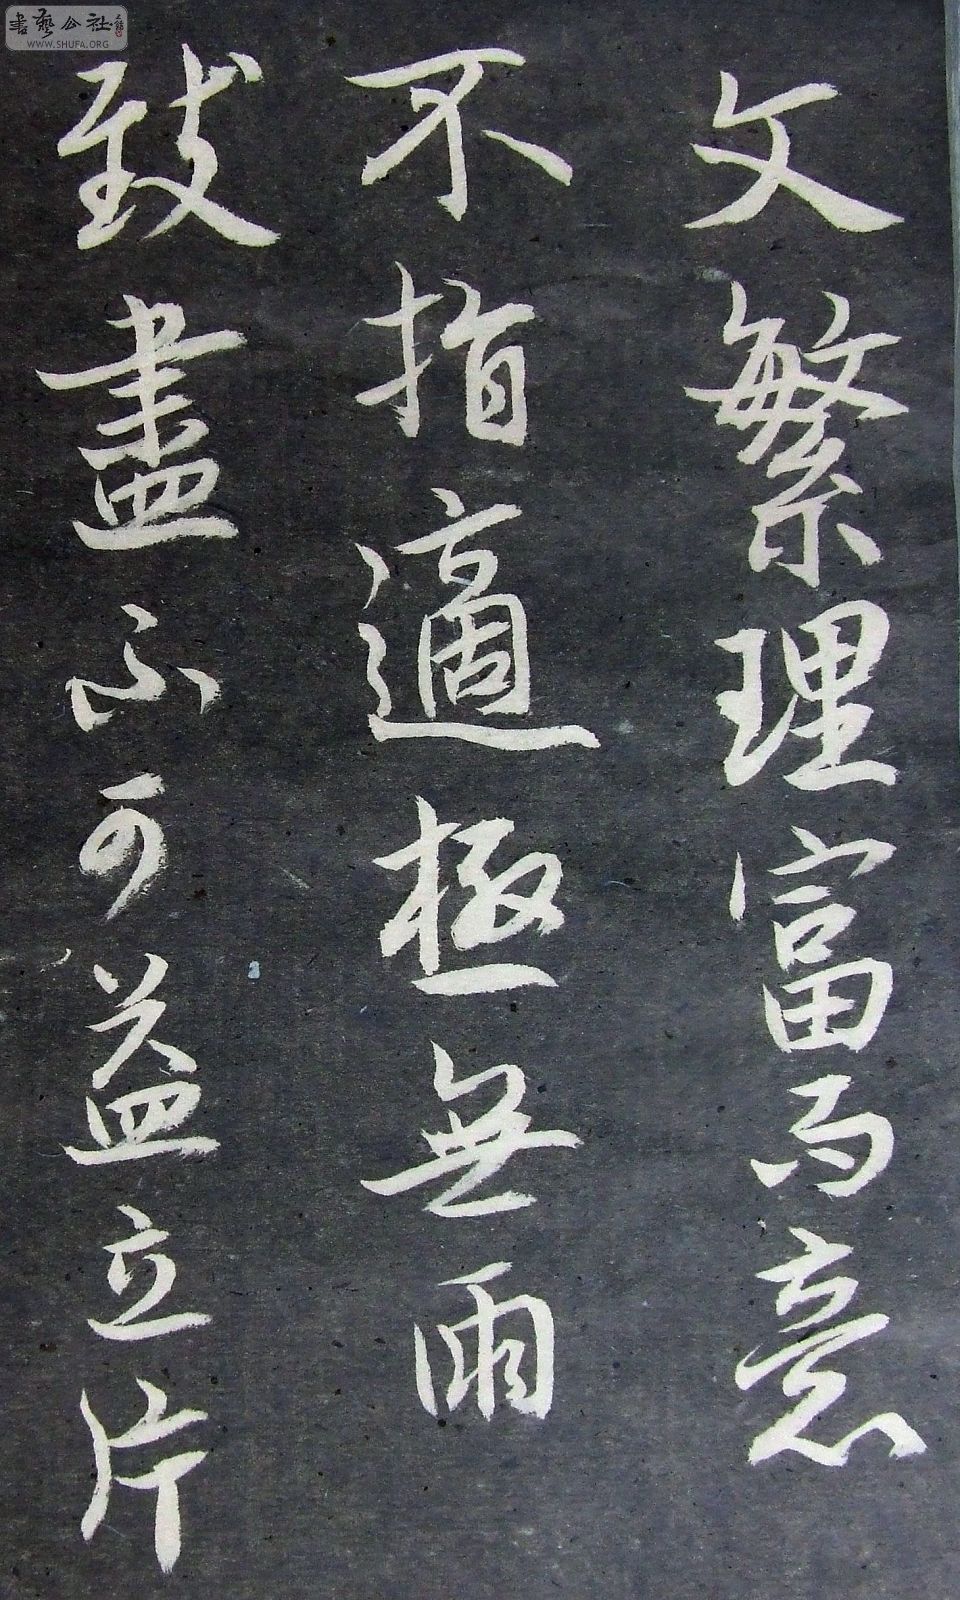 文繁理富而意
不指適極無兩
致盡不可益立片
書藝公社
WWW.SHUFA.ORG